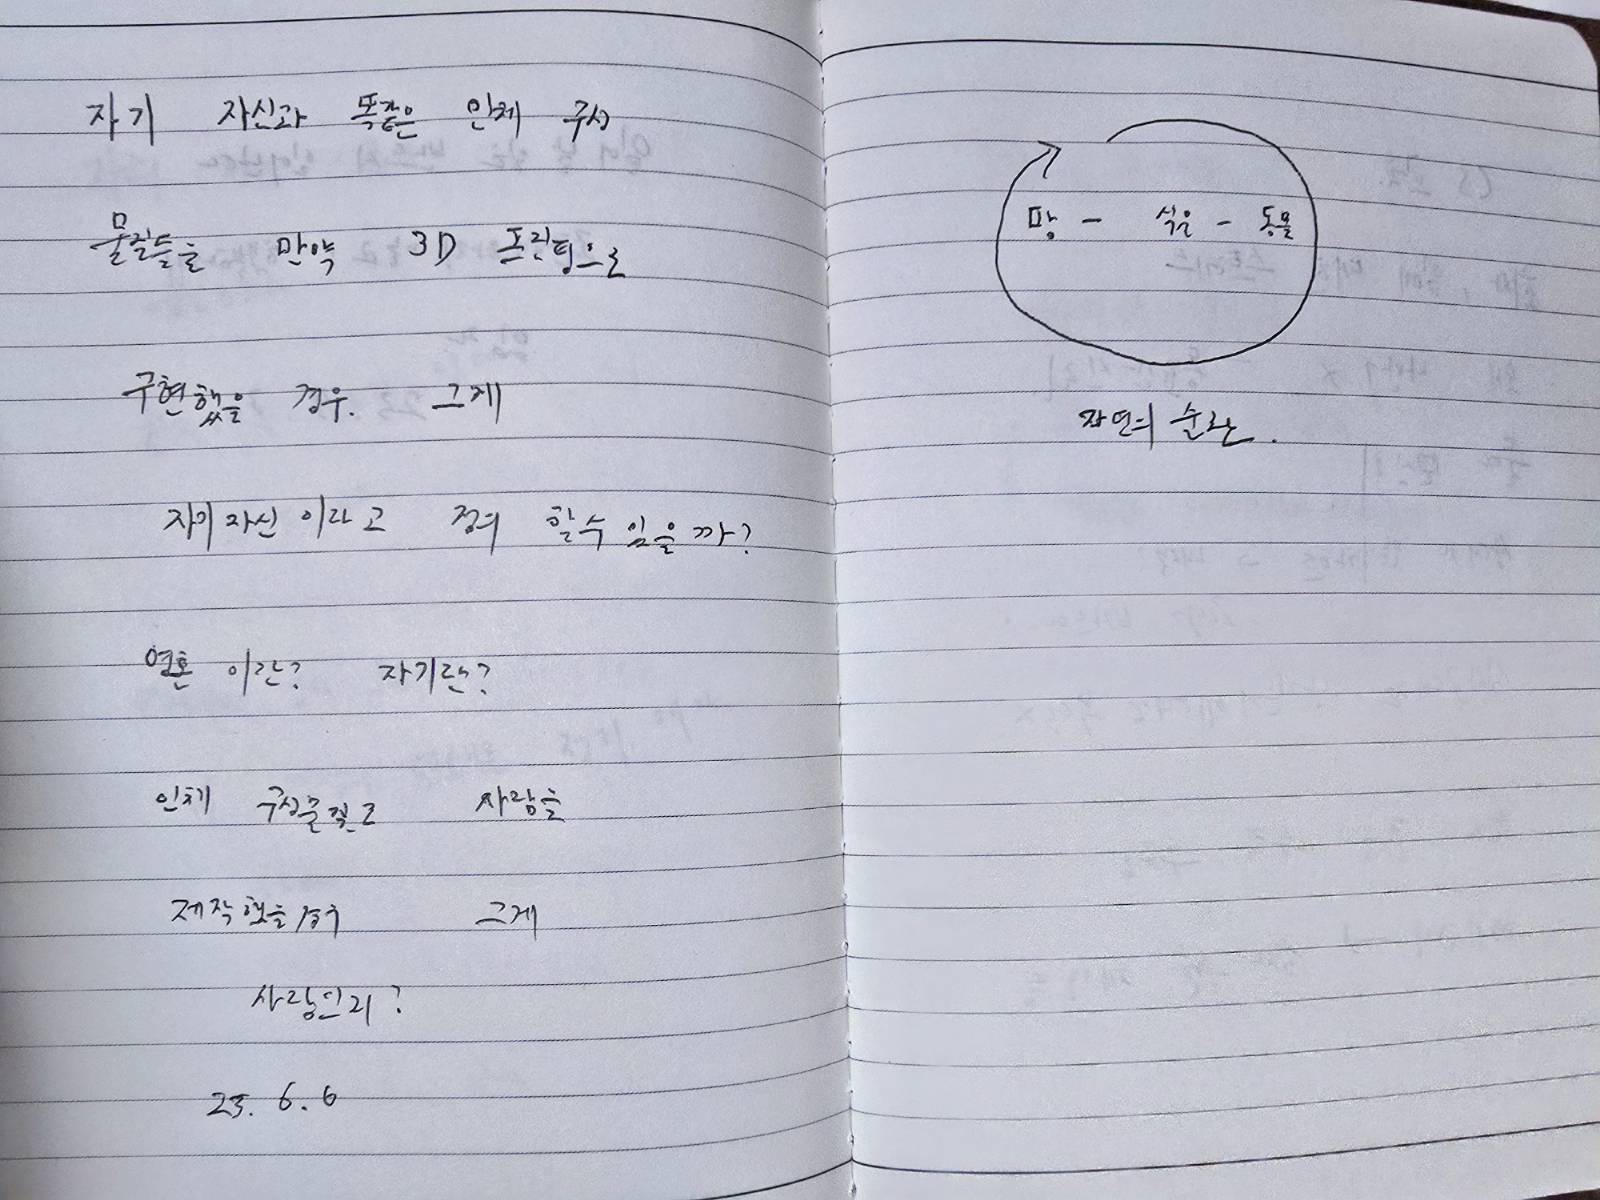 자기 자신과 똑같은 인체 구성
물질들을 만약 3D 프린팅으로
구현했을 경우. 그게
자기자신 이라고 정의 할수 있을까?
영혼 이란? 자기란?
인체 구성물질로 사람을
제작했을 경우 그게
사람인지?
23. 6. 6
땅 - 식물 - 동물
자연의 순환.